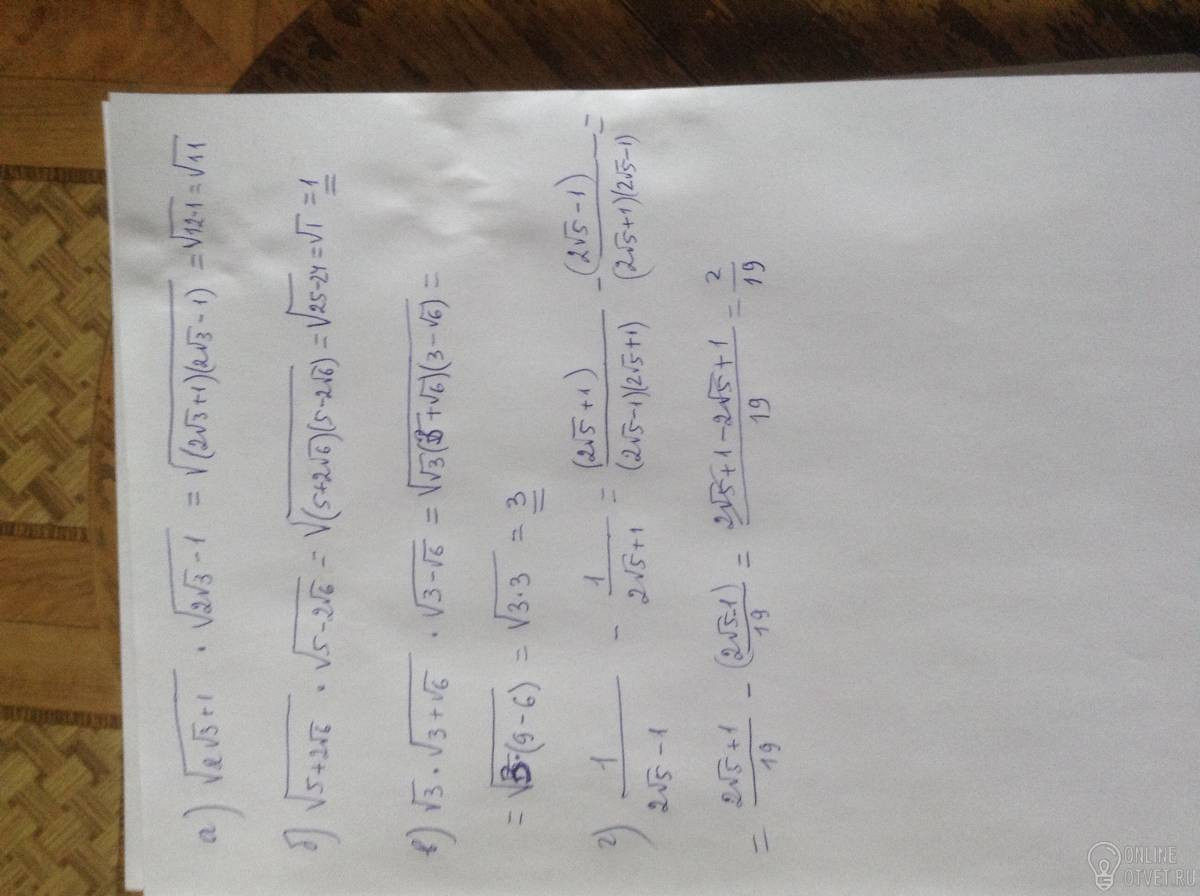 а) √(2√3+1) · √(2√3-1) = √((2√3+1)(2√3-1)) = √(12-1) = √11
б) √(5+2√6) · √(5-2√6) = √((5+2√6)(5-2√6)) = √(25-24) = √1 = 1
в) √3 · √(3+√6) · √(3-√6) = √(√3(3+√6)(3-√6)) =
= √(3·(9-6)) = √(3·3) = 3
г) 1/(2√5-1) - 1/(2√5+1) = (2√5+1)/((2√5-1)(2√5+1)) - (2√5-1)/((2√5+1)(2√5-1)) =
= (2√5+1)/19 - (2√5-1)/19 = (2√5+1-2√5+1)/19 = 2/19
ONLINE
OTVET.RU